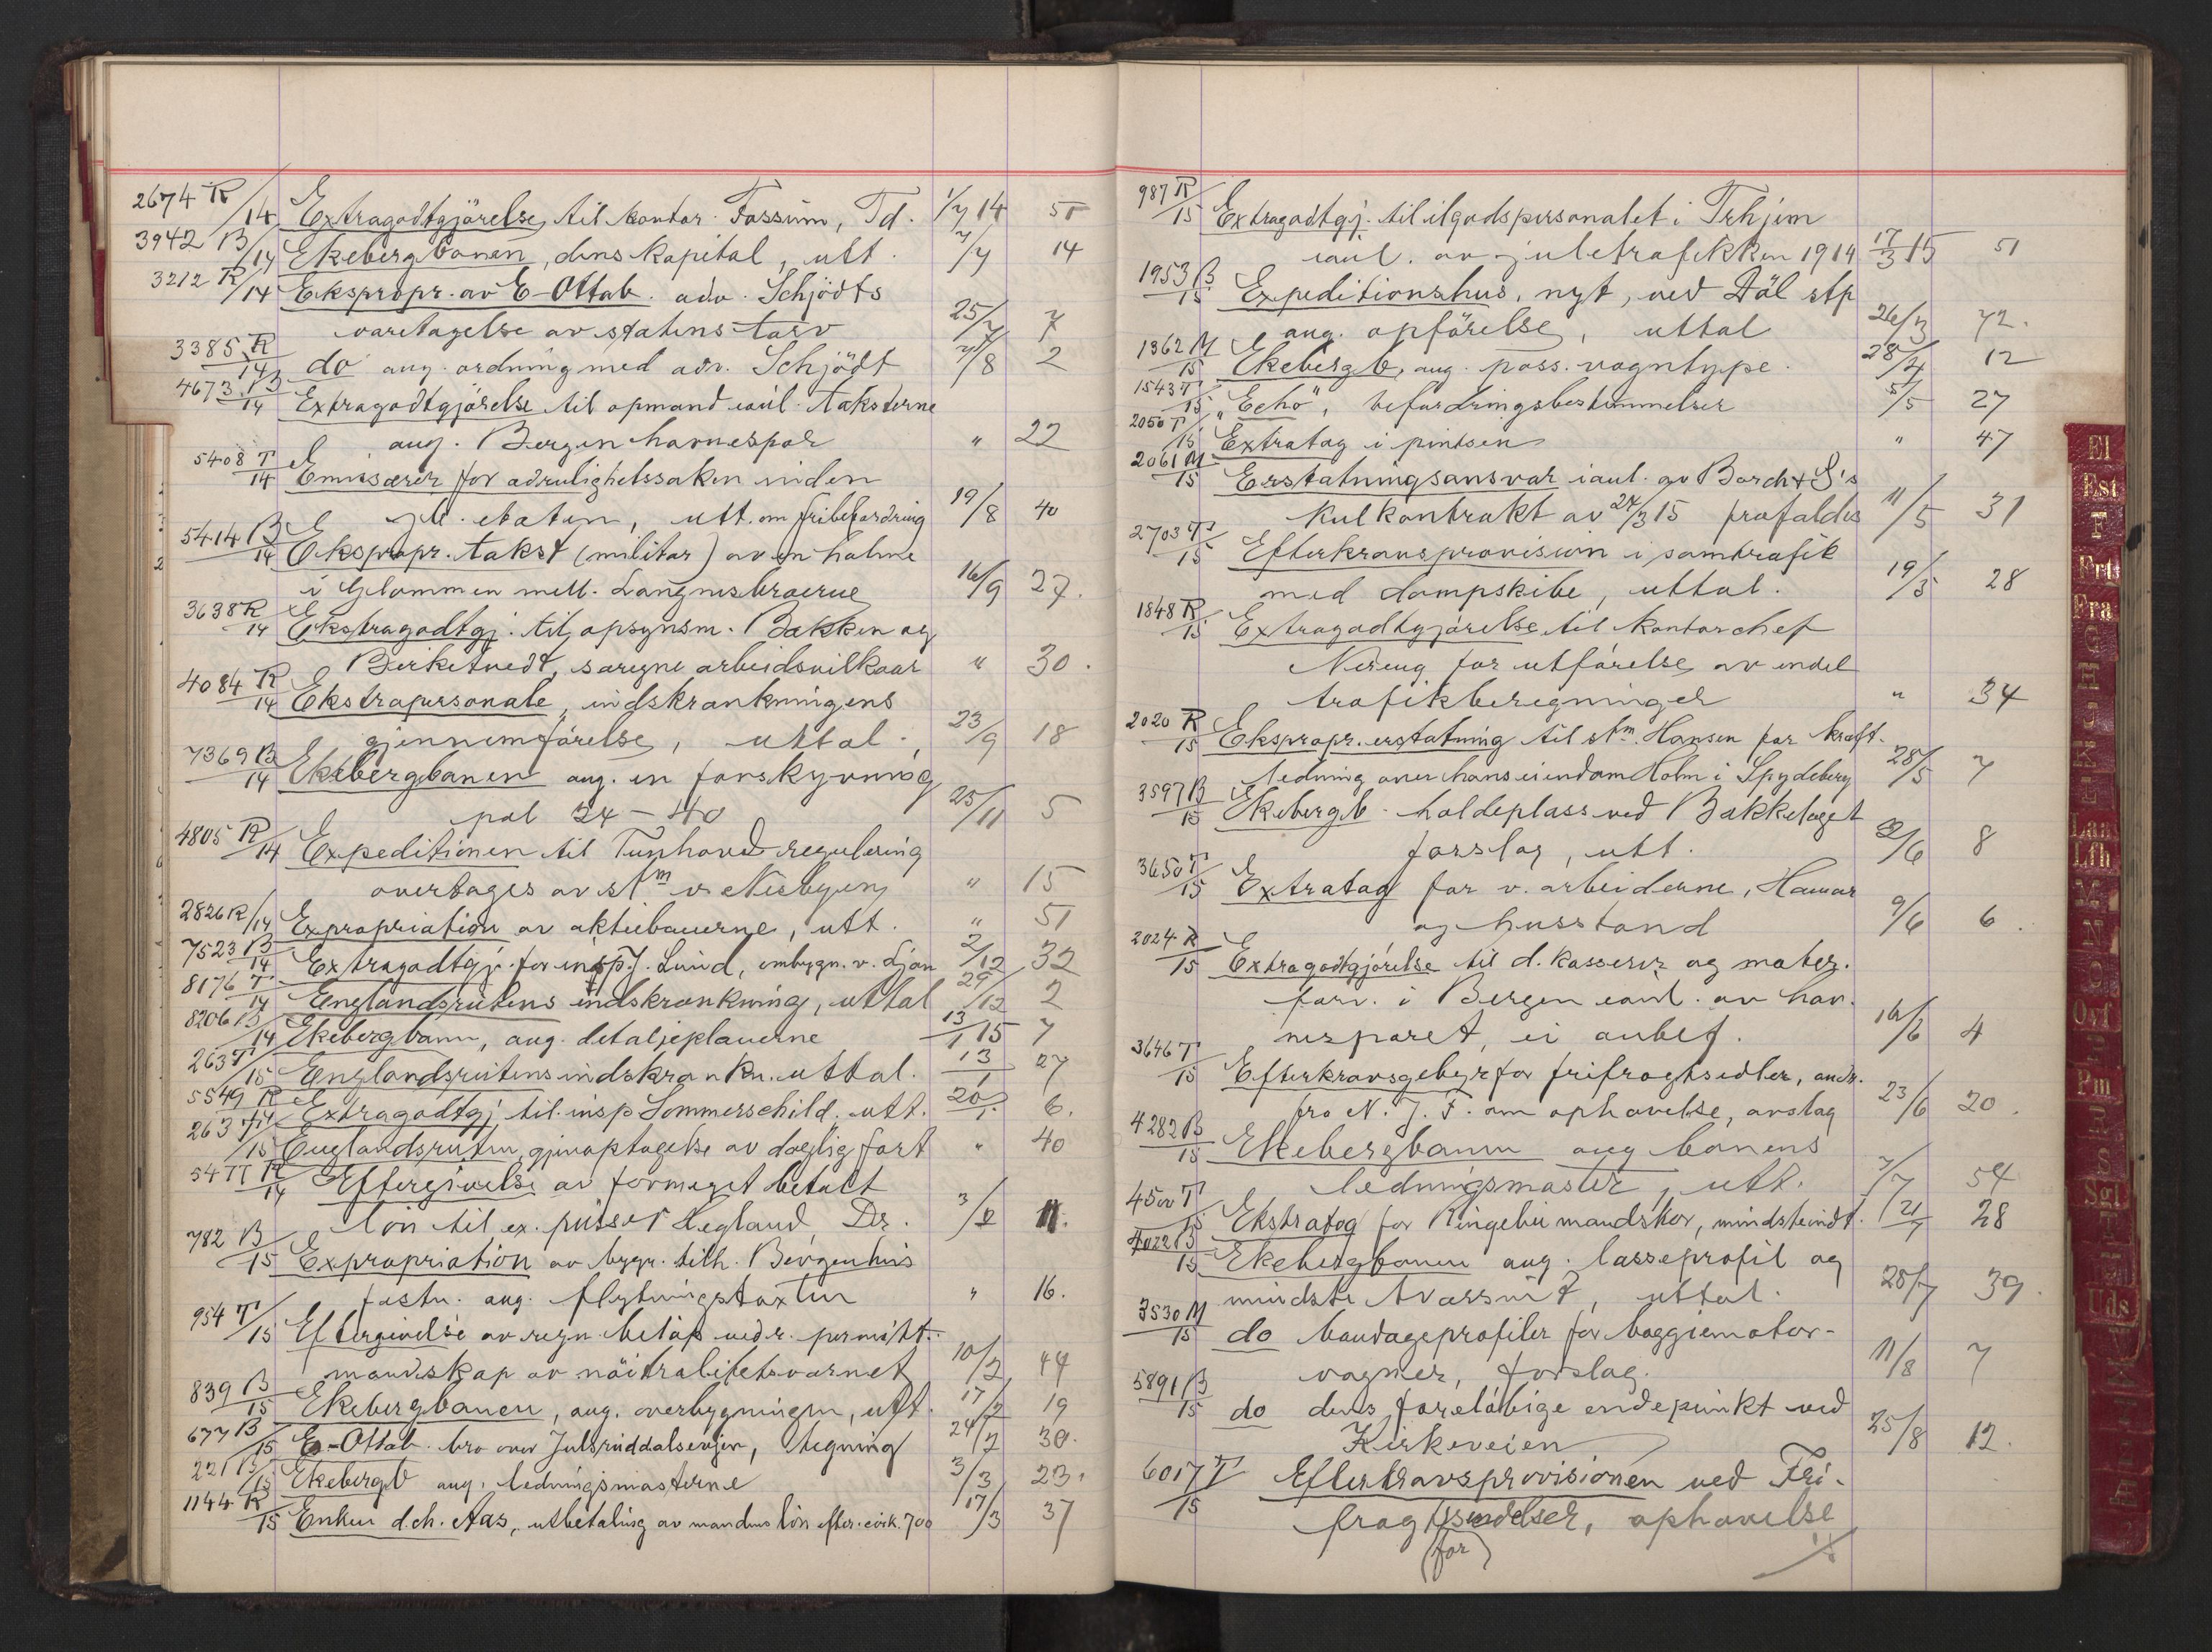 2674 R/14 Extragodtgjörelse til kontor. Fossum, Td. 1/7 14 51
3942 B/14 Ekebergbanen, dens kapital, utt. 7/7 14
3212 R/14 Ekspropr. av E-Ottab. adv. Schjödts
varetagelse av statens tarv 25/7 7
3385 R/14 do ang. ordning med adv. Schjödt 7/8 2
4673 B/14 Extragodtgjörelse til opmand ianl. taksterne
ang. Bergen havnespor " 22
5408 T/14 Emisærer for ædruelighetssaken inden
jb. etaten, utt. om fribefordring 19/8 40
5414 B/14 Ekspropr. takst (militær) av en holme
i Glommen mell. Langnesbroerne 16/9 27.
3638 R/14 Ekstragodtgj. til opsynsm. Bakken og
Birketvedt, særegne arbeidsvilkaar " 30.
4084 R/14 Ekstrapersonale, indskrænkningens
gjennemförelse, uttal. 23/9 18
7369 B/14 Ekebergbanen ang. en forskyvning
pel 34 - 40 25/11 5
4805 R/14 Expeditionen til Tunhovd regulering
overtages av stm v. Nesbyen " 15
2826 R/14 Expropriation av aktiebanerne, utt. " 51
7523 B/14 Extragodtgj. for insp. J. Lund, ombygn. v. Ljan 2/12 32
8176 T/14 Englandsrutens indskrænkning, uttal 29/12 2
8206 B/14 Ekebergbanen, ang. detaljeplanerne 13/1 15 7
263 T/15 Englandsrutens indskrænkn. uttal. 13/1 27
5549 R/14 Extragodtgj. til insp Sommerschild. utt. 20/1 6.
263 T/15 Englandsruten, gjenoptagelse av daglig fart " 40
5477 R/14 Eftergivelse av formeget betalt
lön til ex. pusser Hegland, Dr. 3/2 11.
782 B/15 Expropriation av bygn. tilh. Bergenhus
festn. ang. flytningstaxten " 16.
954 T/15 Eftergivelse av regn. belöp vedr. permitt.
mandskap av nöitralitetsvernet 10/2 44
839 B/15 Ekebergbanen, ang. overbygningen, utt. 17/2 19
677 B/15 E-Ottab. bro over Julsruddalselven, tegning 24/2 30.
221 B/15 Ekebergb ang. ledningsmasterne 3/3 23.
1144 R/15 Enken d.ch. Aas, utbetaling av mandens lön efter. 700 17/3 37
987 R/15 Extragodtgj. til ilgodspersonalet i Trhjem
ianl. av juletrafikken 1914 17/3 15 51
1953 B/15 Expeditionshus, nyt, ved Döl stp
ang. opförelse, uttal 26/3 72.
1362 M/15 Ekebergb, ang. pass. vogntype. 28/4 12
1543 T/15 "Echo", befordringsbestemmelser 5/5 27
2056 T/15 Extratog i pintsen " 47
2061 M/15 Erstatningsansvar ianl. av Borch & S's
kulkontrakt av 27/3 15 frafaldes 11/5 31
2703 T/15 Efterkravsprovision i samtrafik
med dampskibe, uttal. 19/5 28
1848 R/15 Extragodtgjörelse til kontorchef
for utförelse av endel
trafikberegninger " 34
2020 R/15 Ekspropr. erstatning til stm. Hansen for kraft-
ledning over hans eiendom Holm i Spydeberg 28/5 7
3597 B/15 Ekebergb. holdeplass ved Bækkelaget
forslag, utt. /6 8
3650 T/15 Extratog for v. arbeiderne, Hamar
og husstand 9/6 6.
2024 R/15 Extragodtgjörelse til d. kasserer og mater.
forv. i Bergen ianl. av hav-
nesporet, ei anbef. 16/6 4
3646 T/15 Efterkravsgebyr for frifragtsedler, andr.
fra N. J. F. om ophævelse, avslag 23/6 20.
4282 B/15 Ekebergbanen ang banens
ledningsmaster, utt. 7/7 54
4500 T/15 Ekstratog for Ringebu mandskor, mindsteindt. 21/7 28
4022 B/15 Ekebergbanen ang. lasseprofil og
mindste tværsnit, uttal. 28/7 39.
3530 M/15 do bandageprofiler for boggiemotor-
vogner, forslag. 11/8 7
5891 B/15 do dens foreløbige endepunkt ved
Kirkeveien 25/8 12.
6017 T/15 Efterkravsprovisionen ved Fri-
fragtsendelser, ophævelse
(for)
El
Est
F
Frt
Fra
G
H
J
K
L
Lan
Lfh
M
N
O
Osf
P
Pm
R
S
Sgl
T
Uds